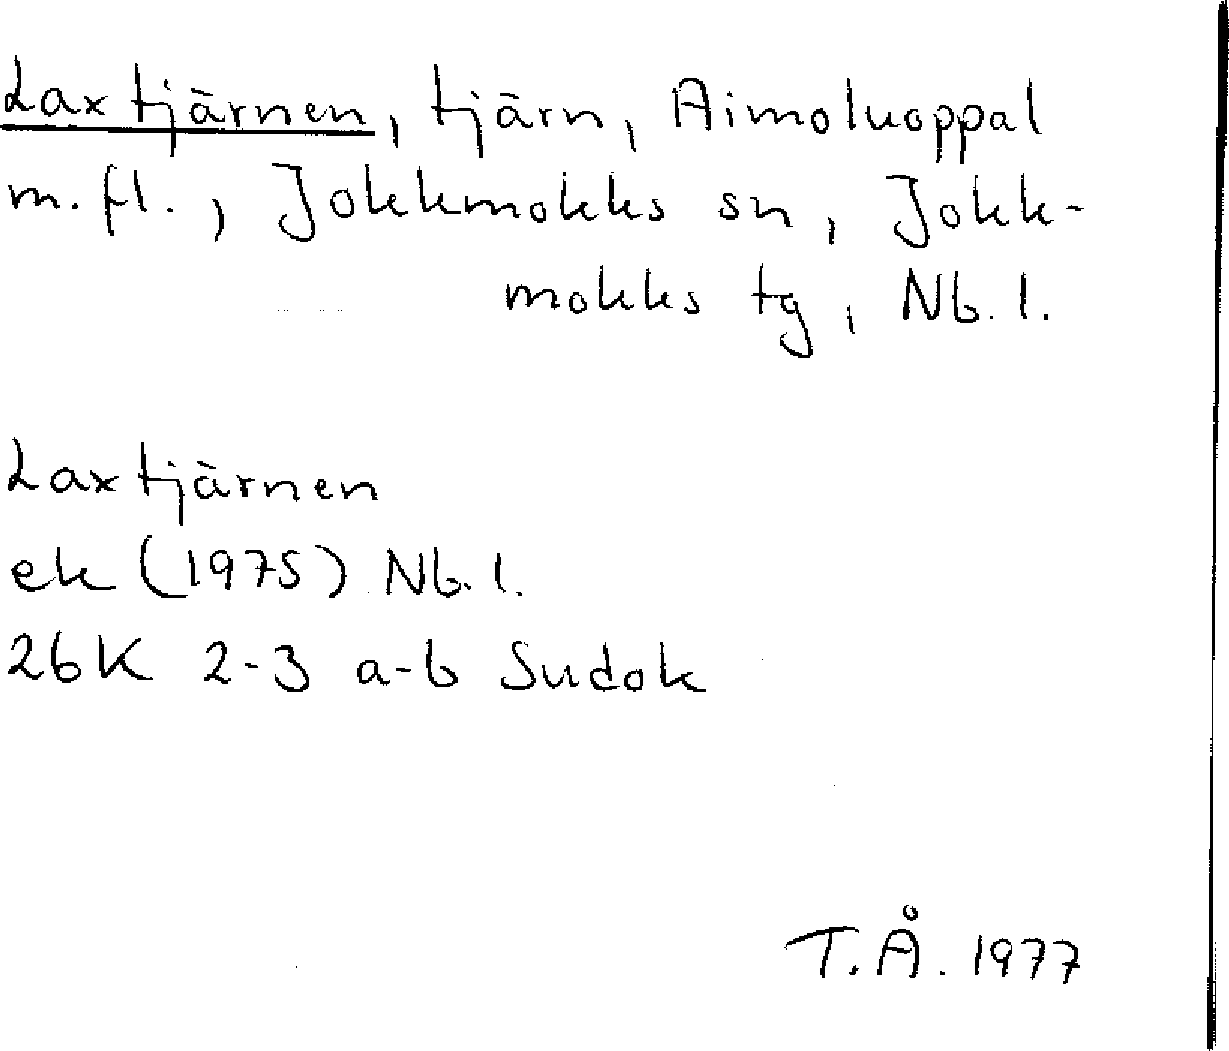 Laxtjärnen, tjärn, Aimoluoppal
m.fl., Jokkmokks sn, Jokk-
mokks tg, Nb.l.
Laxtjärnen
ek (1975) Nb.l.
26K 2-3 a-b Sudok
T.Å. 1977